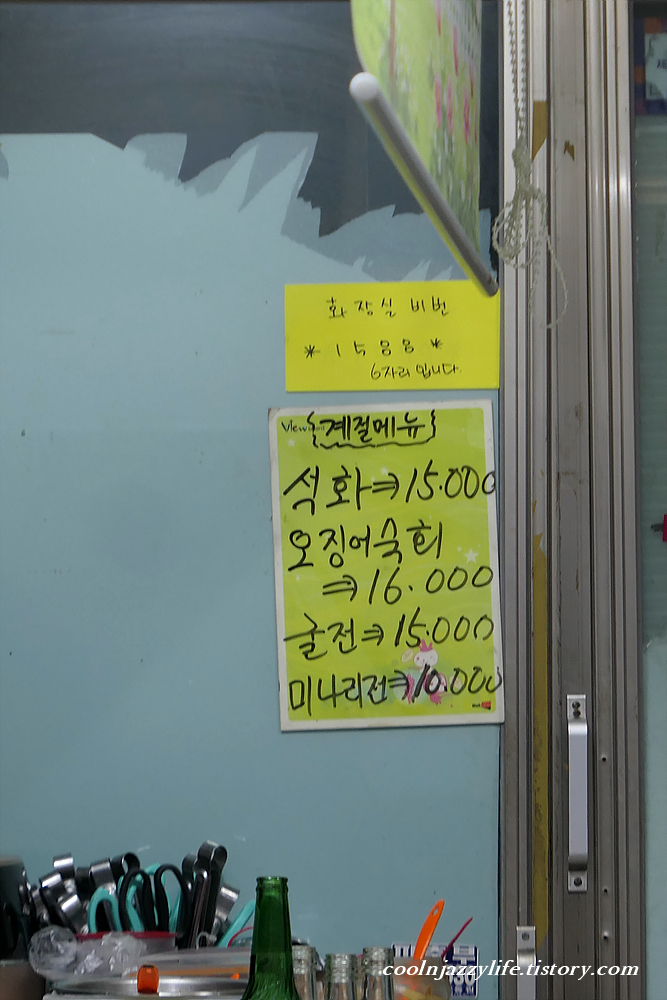 화장실 비번
* 1 5 8 8 *
6자리 입니다.
View
계절메뉴
석화⇒15.000
오징어숙회
⇒16.000
굴전⇒15.000
미나리전⇒10.000
coolnjazzylife.tistory.com